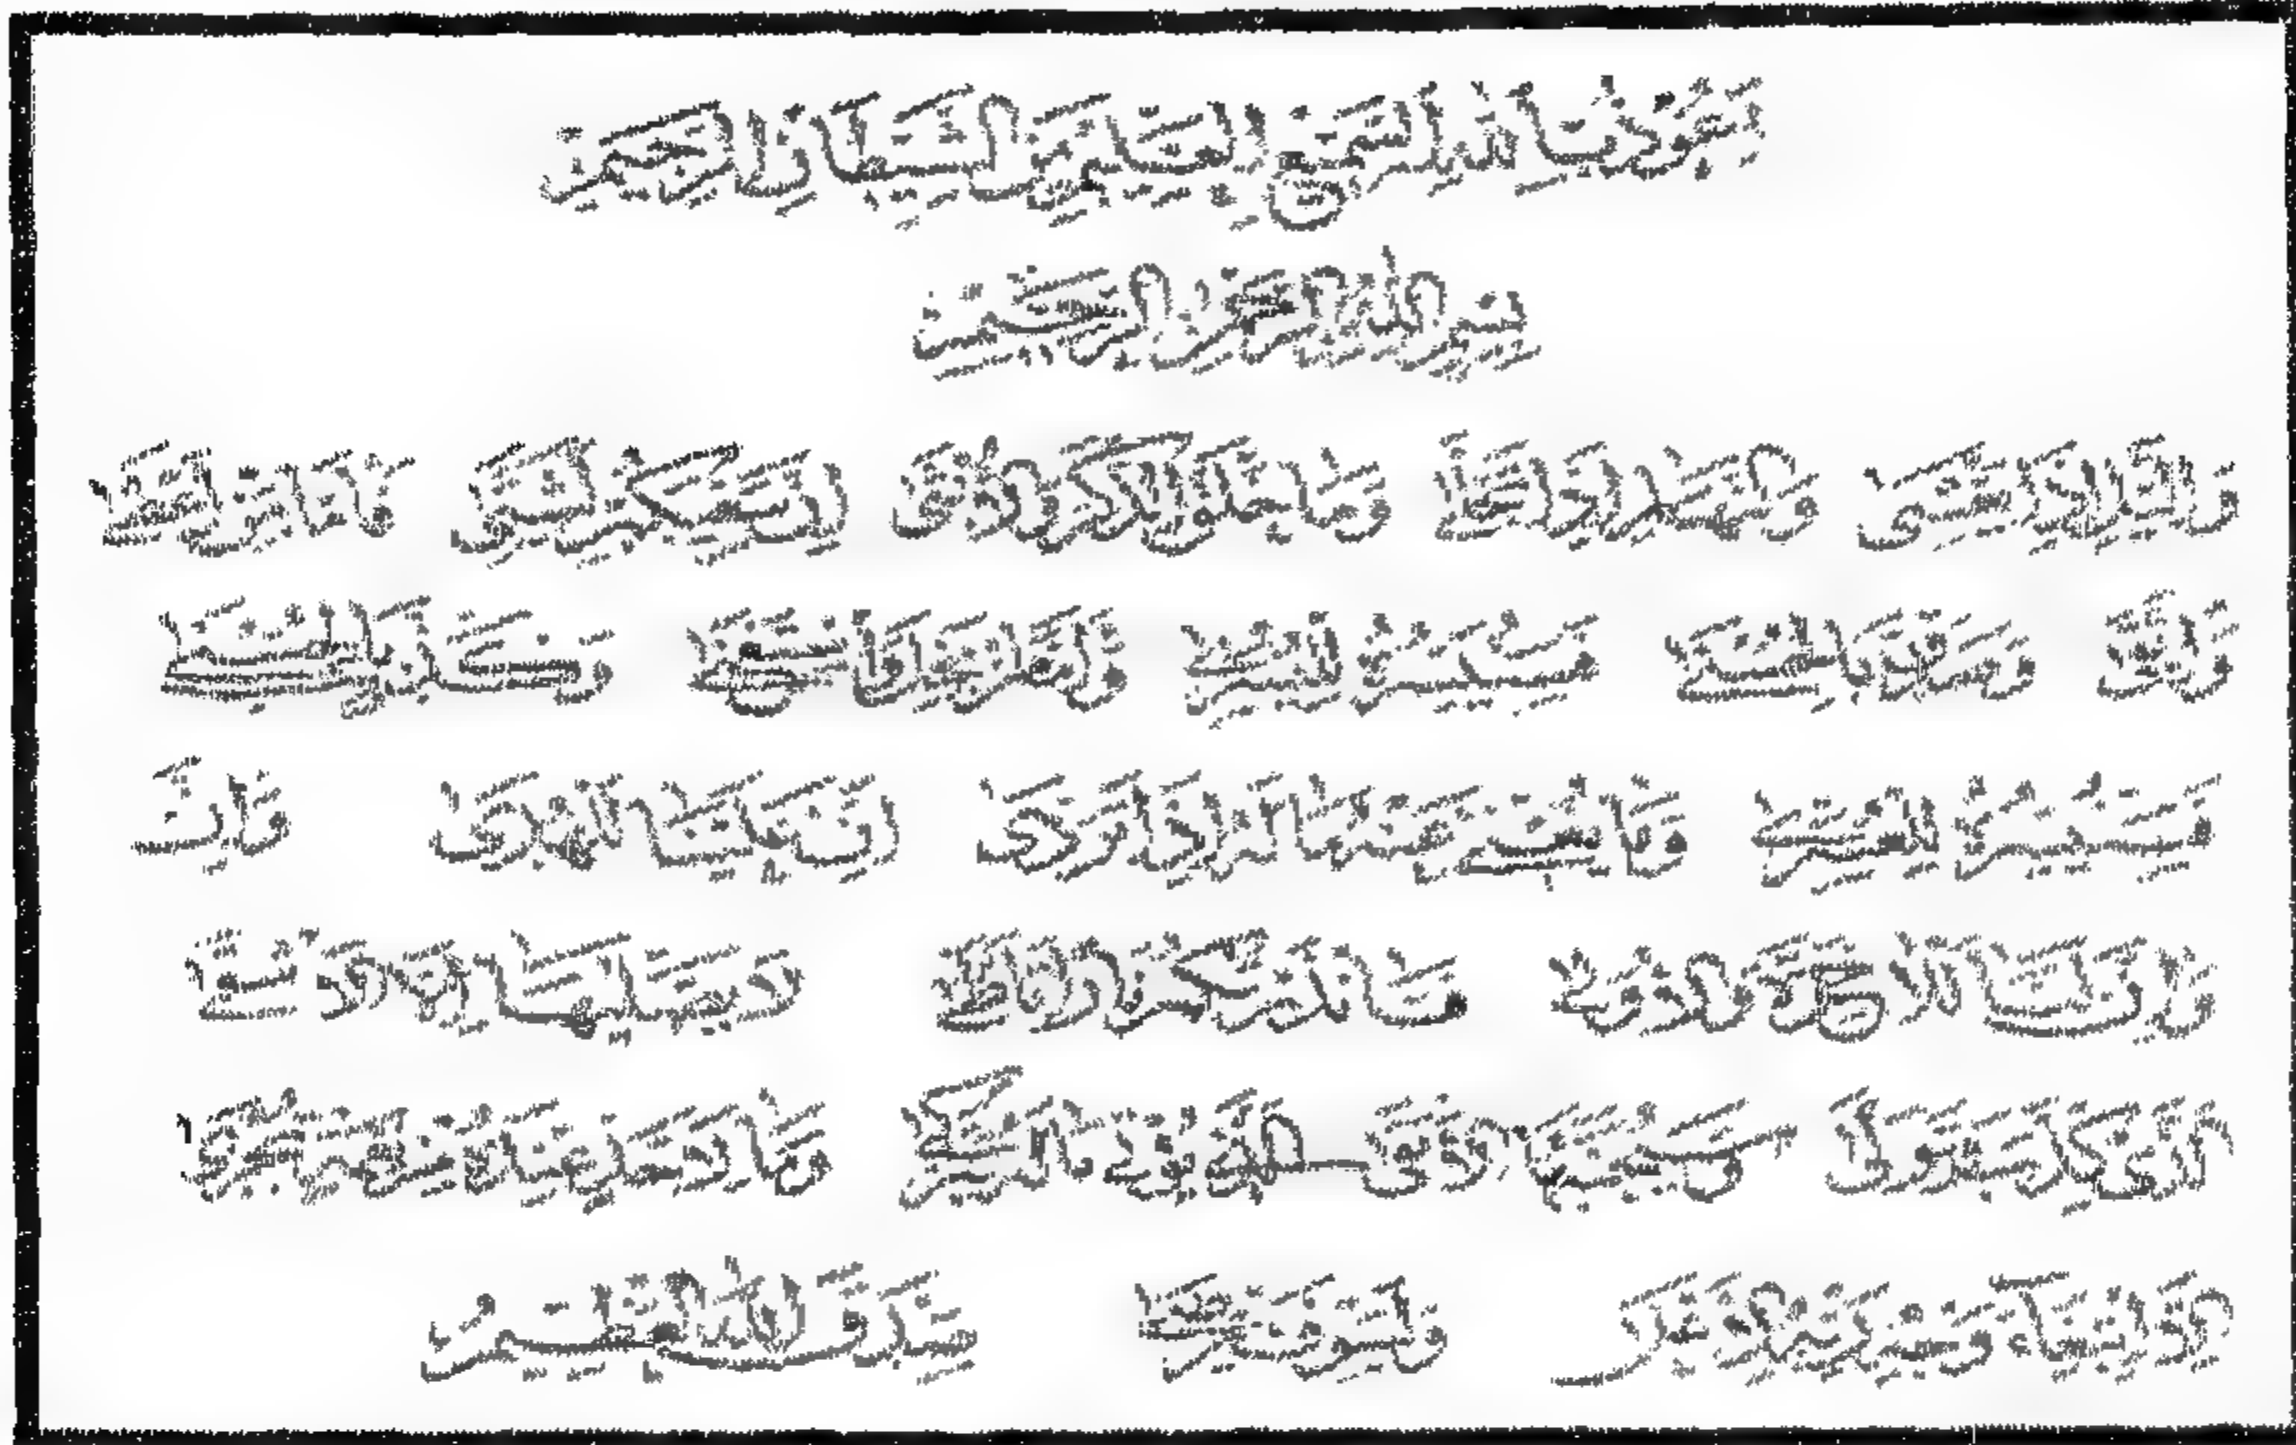 اعوذ بالله السميع العليم من الشيطان الرجيم
بسم الله الرحمن الرحيم
والليل اذا يغشى والنهار اذا تجلى وما خلق الذكر والانثى ان سعيكم لشتى فاما من اعطى
واتقى وصدق بالحسنى فسنيسره لليسرى واما من بخل واستغنى وكذب بالحسنى
فسنيسره للعسرى وما يغني عنه ماله اذا تردى ان علينا للهدى وان
لنا للآخرة والاولى فانذرتكم نارا تلظى لا يصلاها الا الاشقى
الذي كذب وتولى وسيجنبها الاتقى الذي يؤتي ماله يتزكى وما لاحد عنده من نعمة تجزى
الا ابتغاء وجه ربه الاعلى ولسوف يرضى صدق الله العظيم